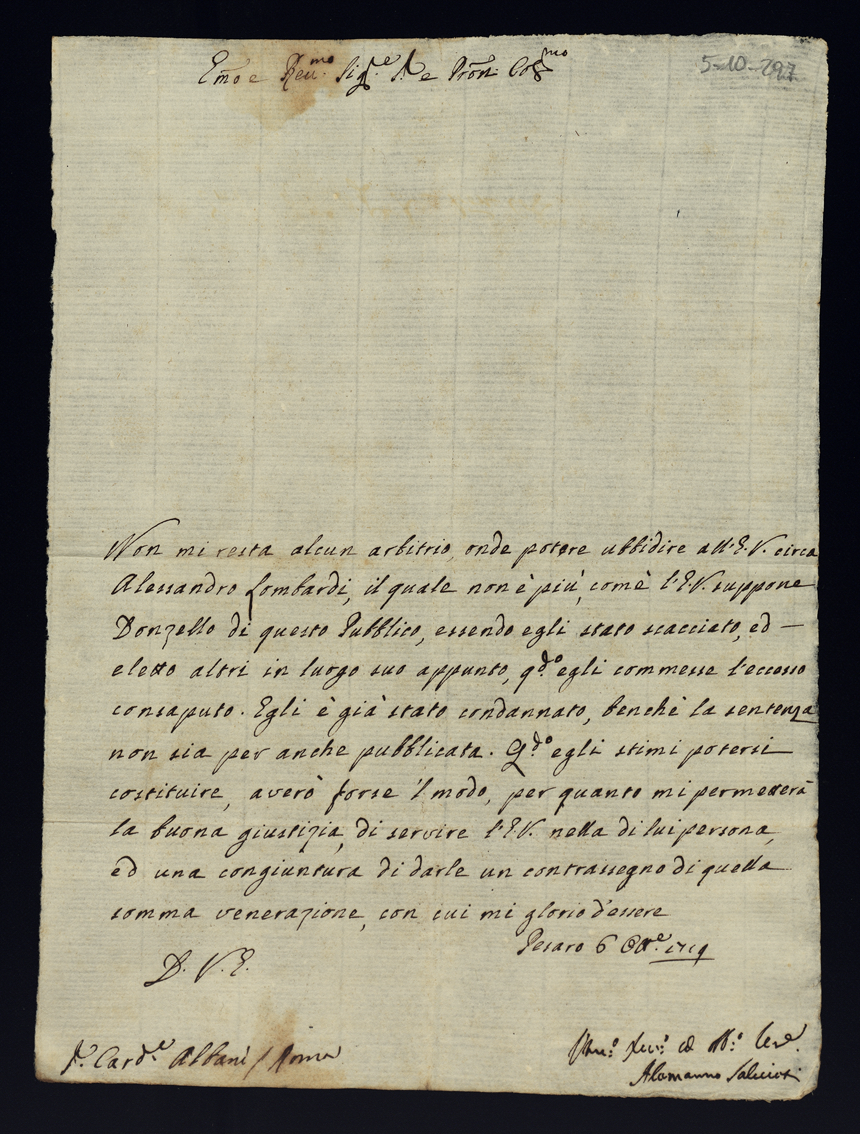 Em̃o e Reu.mo Sig.re S.r e Pron͠ Col.mo
5-10-297
Non mi resta alcun arbitrio, onde potere ubbidire all'E.V. circa
Alessandro Lombardi, il quale non è più, com'è l'E.V. suppone
Donzello di questo Pubblico, essendo egli stato scacciato, ed —
eletto altri in luogo suo appunto, q.do egli commesse l'eccesso
consaputo. Egli è già stato condannato, benchè la sentenza
non sia per anche pubblicata. Q.do egli stimi potersi
costituire, averò forse 'l modo, per quanto mi permetterà
la buona giustizia, di servire l'E.V. nella di lui persona,
ed una congiuntura di darle un contrassegno di quella
somma venerazione, con cui mi glorio d'essere
Pesaro 6 Ott.e 1719
D. V. E.
S.r Card.le Albani / Roma
Alamanno Salviati